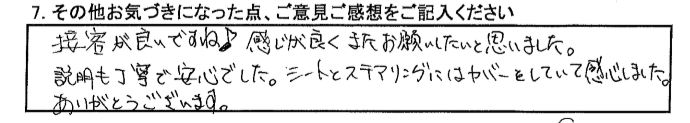 7. その他お気づきになった点、ご意見ご感想をご記入ください
接客が良いですね♪ 感じが良くまたお願いしたいと思いました。
説明も丁寧で安心でした。シートとステアリングにはカバーをしていて感心しました。
ありがとうございます。